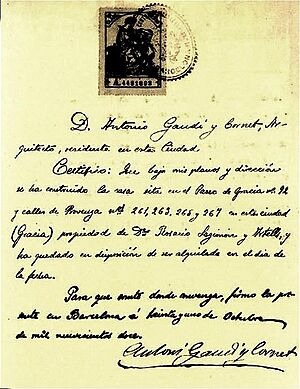 D. Antonio Gaudí y Cornet, Ar-
quitecto, residente en esta Ciudad
Certifico: Que bajo mis planos y dirección
se ha construido la casa sita en el Paseo de Gracia nº 92
y calles de Provenza nos 261, 263, 265 y 267 en esta ciudad
(Gracia) propiedad de Dña Rosario Segimon y
ha quedado en disposición de ser alquilada en el día de
la fecha.
Para que conste donde convenga, firmo la pre-
sente en Barcelona á treinta y uno de Octubre
de mil novecientos doce.
Antoni Gaudí y Cornet